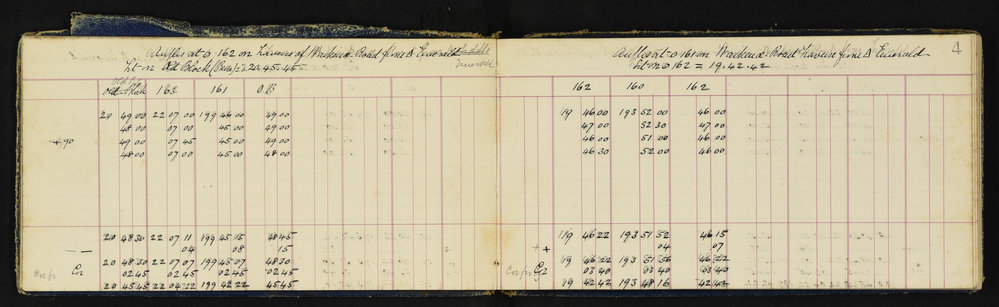 Angles at ⊙ 162 on Traverse of Road from to Emerald
Emerald
Lt on Old Block (Dun) = 20.45.45
Old 163 161 OB
20 49 00 22 07 00 199 46 00 49 00
48 00 07 00 45 00 49 00
+90 49 00 07 45 45 00 49 00
48 00 07 00 45 00 48 00
20 48 30 22 07 11 199 45 15 48 45
— — 04 08 15
20 48 30 22 07 07 199 45 07 48 30
Cor for Cr 02 45 02 45 02 45 02 45
20 45 45 22 04 22 199 42 22 45 45
4
Angles at ⊙ 161 on Road Traverse from to Emerald
Lt on ⊙ 162 = 19.42.42
162 160 162
19 46 00 193 52 00 46 00
47 00 52 30 47 00
46 00 51 00 46 00
46 30 52 00 46 00
19 46 22 193 51 52 46 15
+ + 04 07
19 46 22 193 51 56 46 22
Cor for Cr 03 40 03 40 03 40
19 42 42 193 48 16 42 42